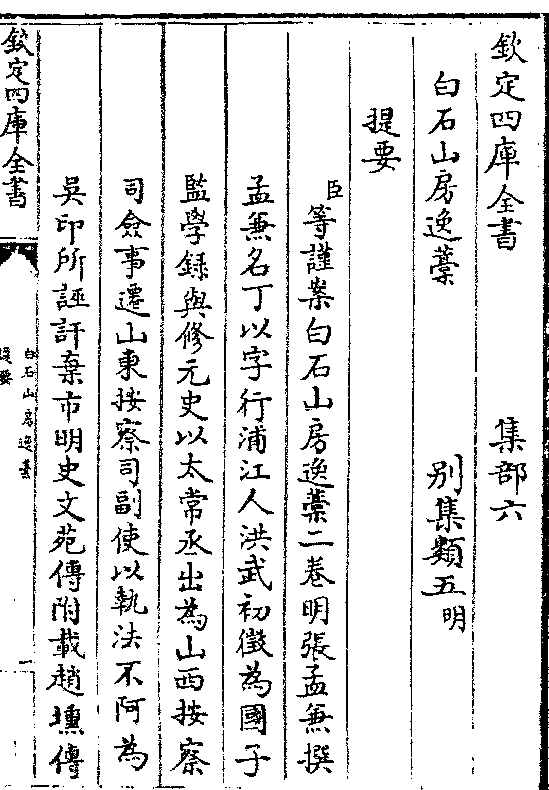 欽定四庫全書　　　　集部六
白石山房逸藁　　　　別集類五明
提要
臣等謹案白石山房逸藁二卷明張孟兼撰
孟兼名丁以字行浦江人洪武初徵為國子
監學録與修元史以太常丞出為山西按察
司僉事遷山東按察司副使以執法不阿為
吳印所誣訐棄市明史文苑傳附載趙壎傳
欽定四庫全書
白石山房逸藁
提要
一